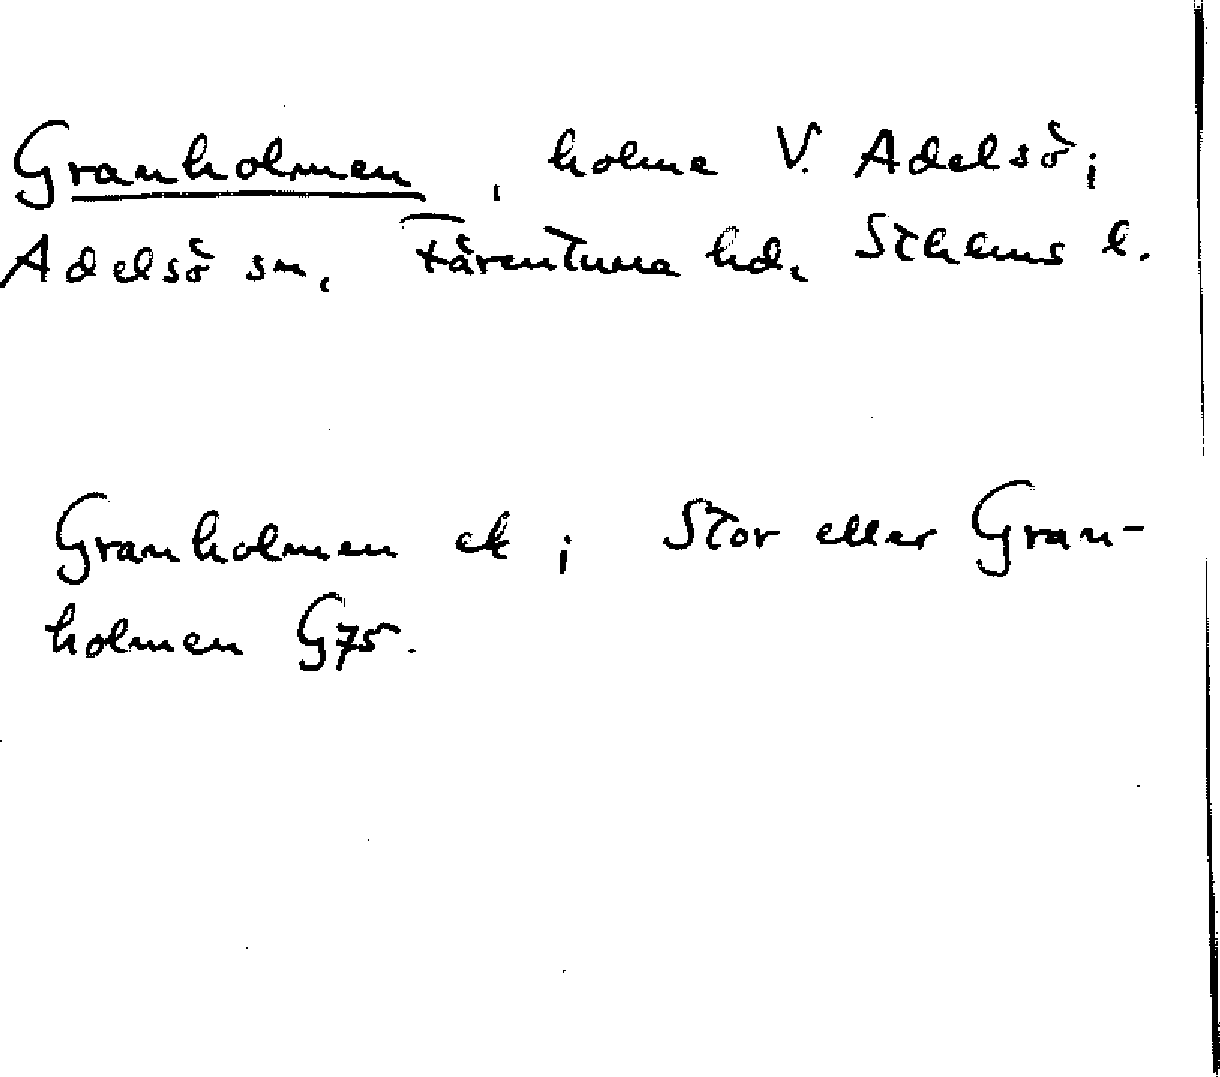 Granholmen, holme V. Adelsö;
Adelsö sn, Färentuna hd, Sthlms l.
Granholmen ek; Stor eller Gran-
holmen G75.